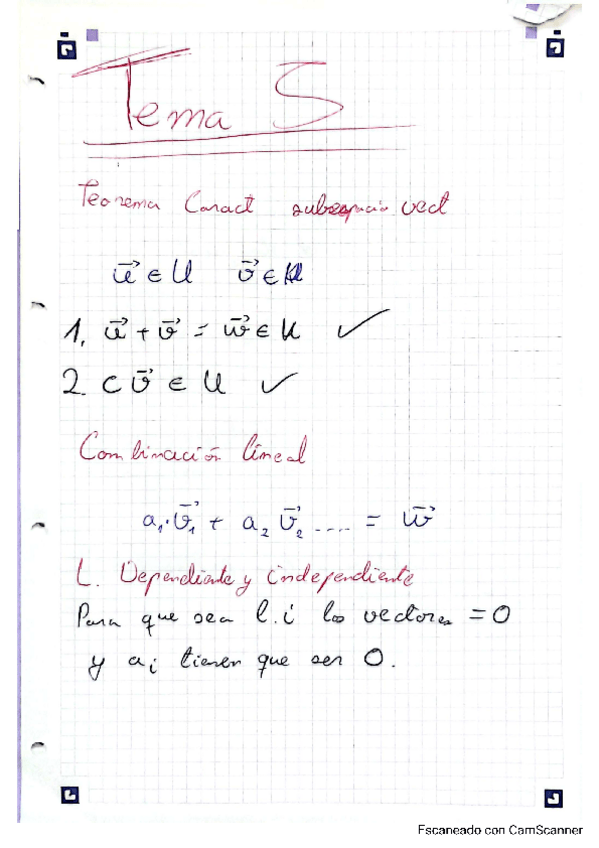 Tema 5
Teorema Caract subespacio vect
u⃗ ∈ U v⃗ ∈ U
1. u⃗ + v⃗ = w⃗ ∈ U ✓
2. c v⃗ ∈ U ✓
Combinación lineal
a₁·v⃗₁ + a₂ v⃗₂ .... = w⃗
L. Dependiente y independiente
Para que sea l.i los vectores = 0
y aᵢ tienen que ser 0.
Escaneado con CamScanner